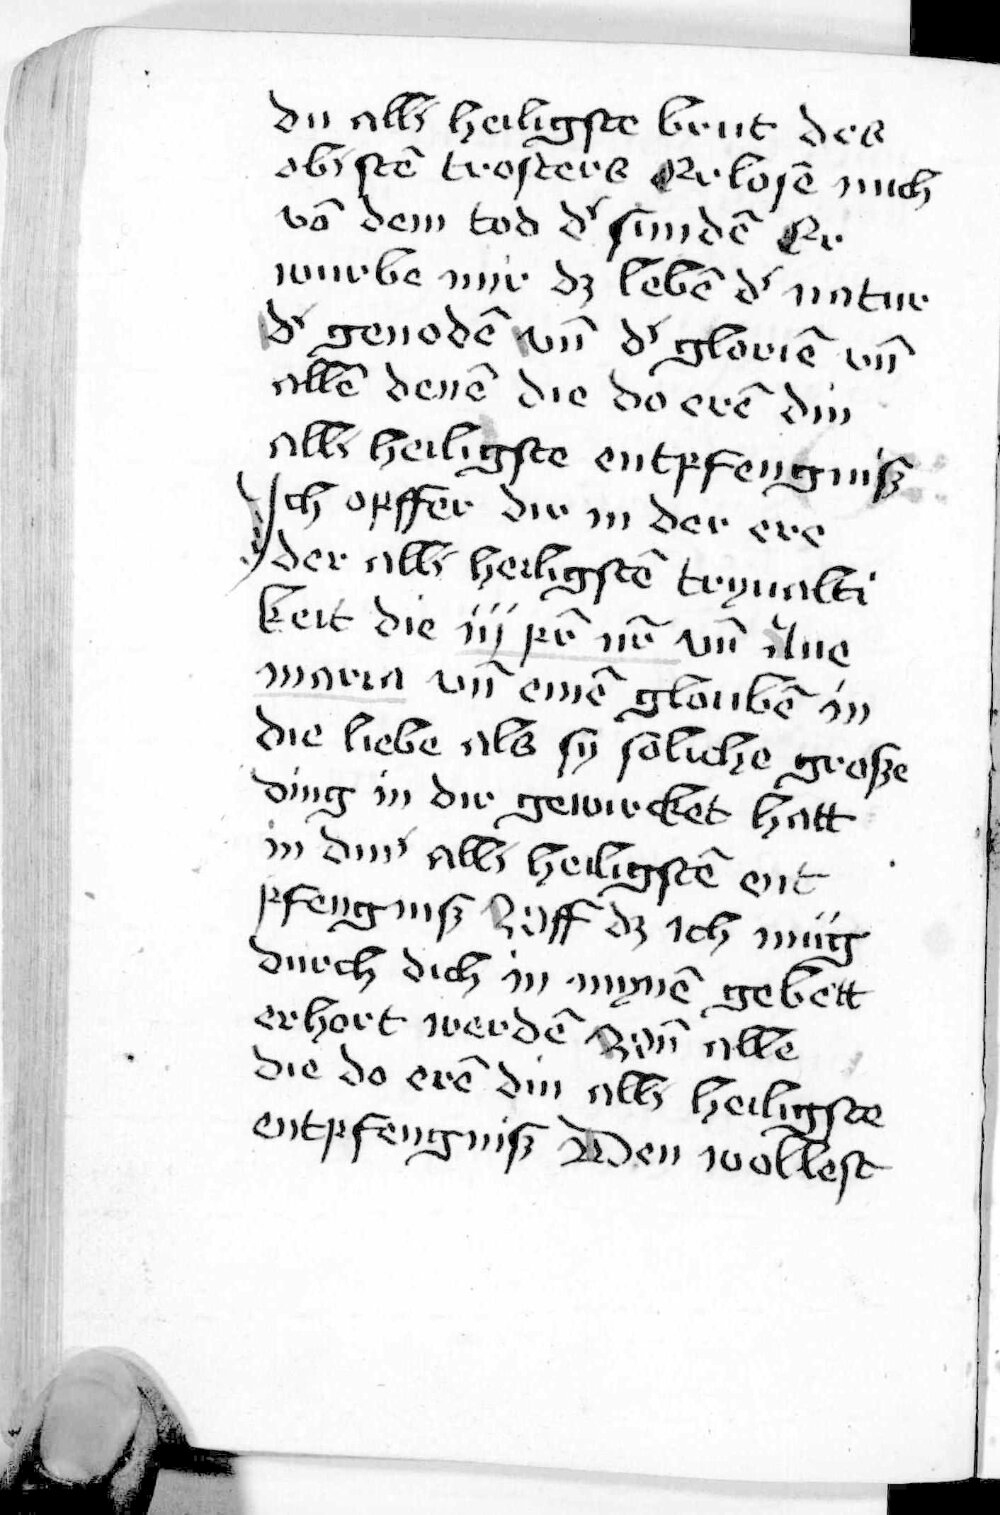 du allʼ heiligste brut des
obʼstē trosters Erlosē mich
vō dem tod dʼ sundē Er
wurbe mir dz lebē dʼ natur
dʼ genodē vn̄ dʼ gloriē vn̄
allē denē die do erē din
allʼ heiligste entpfengniß
Ich opffer dir in der ere
der allʼ heiligstē tryualti
keit die iij pr̄ nr̄ vn̄ Aue
maria vn̄ einē gloubē in
die liebe als sy sōliche große
ding in dir gewircket hatt
in dinʼ allʼ heiligstē ent
pfengniß Vff dz ich müg
durch dich in mynē gebett
erhort werdē Vn̄ alle
die do erē din allʼ heiligste
entpfengniß Den wollest